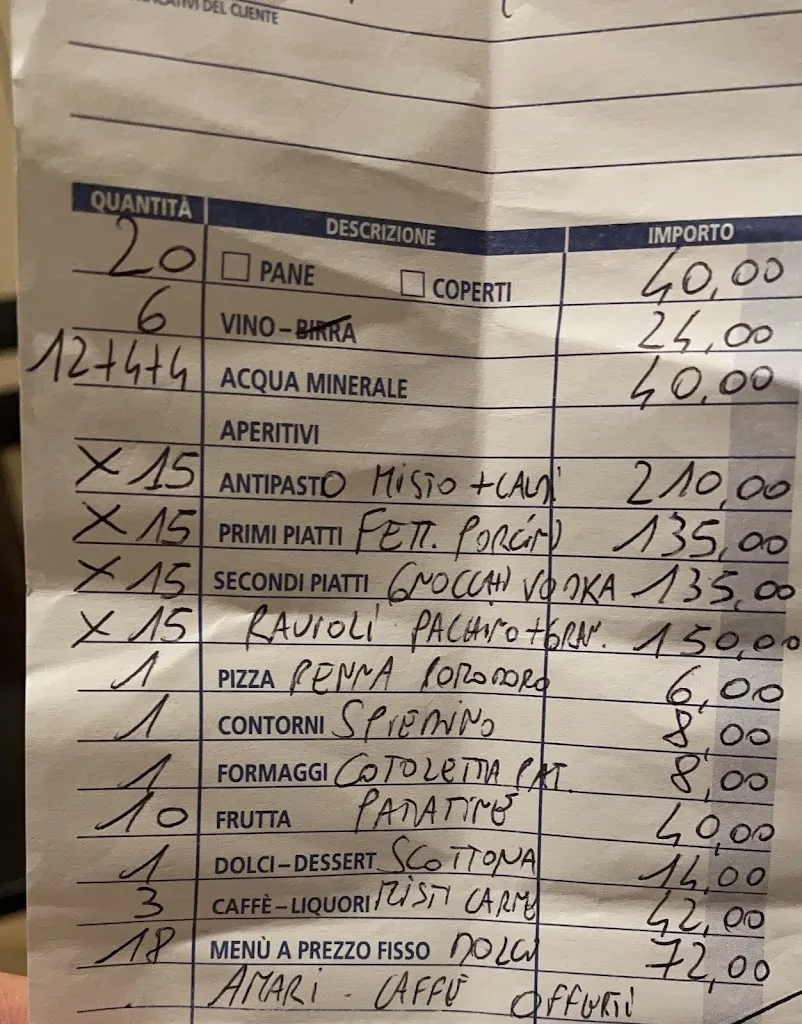 DEL CLIENTE
QUANTITÀ DESCRIZIONE IMPORTO
20 PANE COPERTI 40,00
6 VINO-BIRRA 24,00
12+4+4 ACQUA MINERALE 40,00
APERITIVI
X 15 ANTIPASTO MISTO + 210,00
X 15 PRIMI PIATTI FETT. PORCINI 135,00
X 15 SECONDI PIATTI GNOCCHI VODKA 135,00
X 15 RAVIOLI PACHINO + GRAN. 150,00
1 PIZZA PENNA POMODORO 6,00
1 CONTORNI 8,00
1 FORMAGGI COTOLETTA PAT. 8,00
10 FRUTTA PATATINE 40,00
1 DOLCI-DESSERT SCOTTONA 14,00
3 CAFFÈ-LIQUORI MISTI CARNE 42,00
18 MENÙ A PREZZO FISSO DOLCI 72,00
AMARI - CAFFÈ OFFERTI